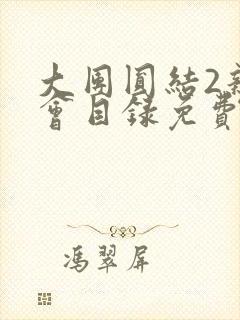 大團圓結2親
會目録免費
馮翠屏